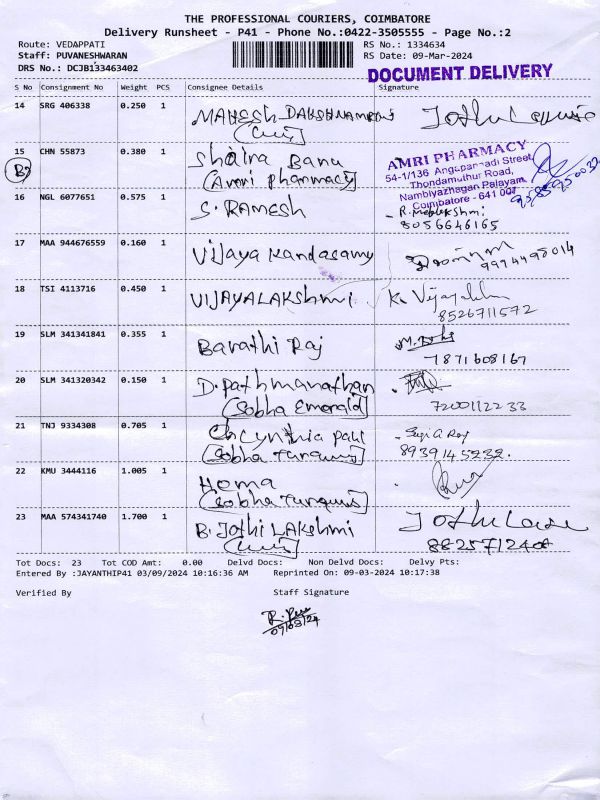 THE PROFESSIONAL COURIERS, COIMBATORE
Delivery Runsheet - P41 - Phone No.:0422-3505555 - Page No.:2
Route: VEDAPPATI
RS No.: 1334634
Staff: PUVANESHWARAN
RS Date: 09-Mar-2024
DRS No.: DCJB133463402
DOCUMENT DELIVERY
S No Consignment No Weight PCS Consignee Details Signature
14 SRG 406338 0.250 1 MAHESH
15 CHN 55873 0.380 1 Shaira Banu
(Amri pharmacy)
AMRI PHARMACY
54-1/136 Angapannadi Street
Thondamuthur Road,
Nambiyazhagan Palayam,
Coimbatore - 641 007
16 NGL 6077651 0.575 1 S. RAMESH
8056646165
17 MAA 944676559 0.160 1 Vijaya Kandasamy
9994495014
18 TSI 4113716 0.450 1 VIJAYALAKSHMI K. Vijayalakshmi
8526711572
19 SLM 341341841 0.355 1 Barathi Raj
7871608167
20 SLM 341320342 0.150 1 D. Pathmanathan
(Sobha Emerald)
7200112233
21 TNJ 9334308 0.705 1 Cynthia Paul
(Sobha Turquis)
8939145232
22 KMU 3444116 1.005 1 Homa
(Sobha Turquis)
23 MAA 574341740 1.700 1 B. Jothi LAKshmi
Tot Docs: 23 Tot COD Amt: 0.00 Delvd Docs: Non Delvd Docs: Delvy Pts:
Entered By :JAYANTHIP41 03/09/2024 10:16:36 AM Reprinted On: 09-03-2024 10:17:38
Verified By Staff Signature
09/03/24